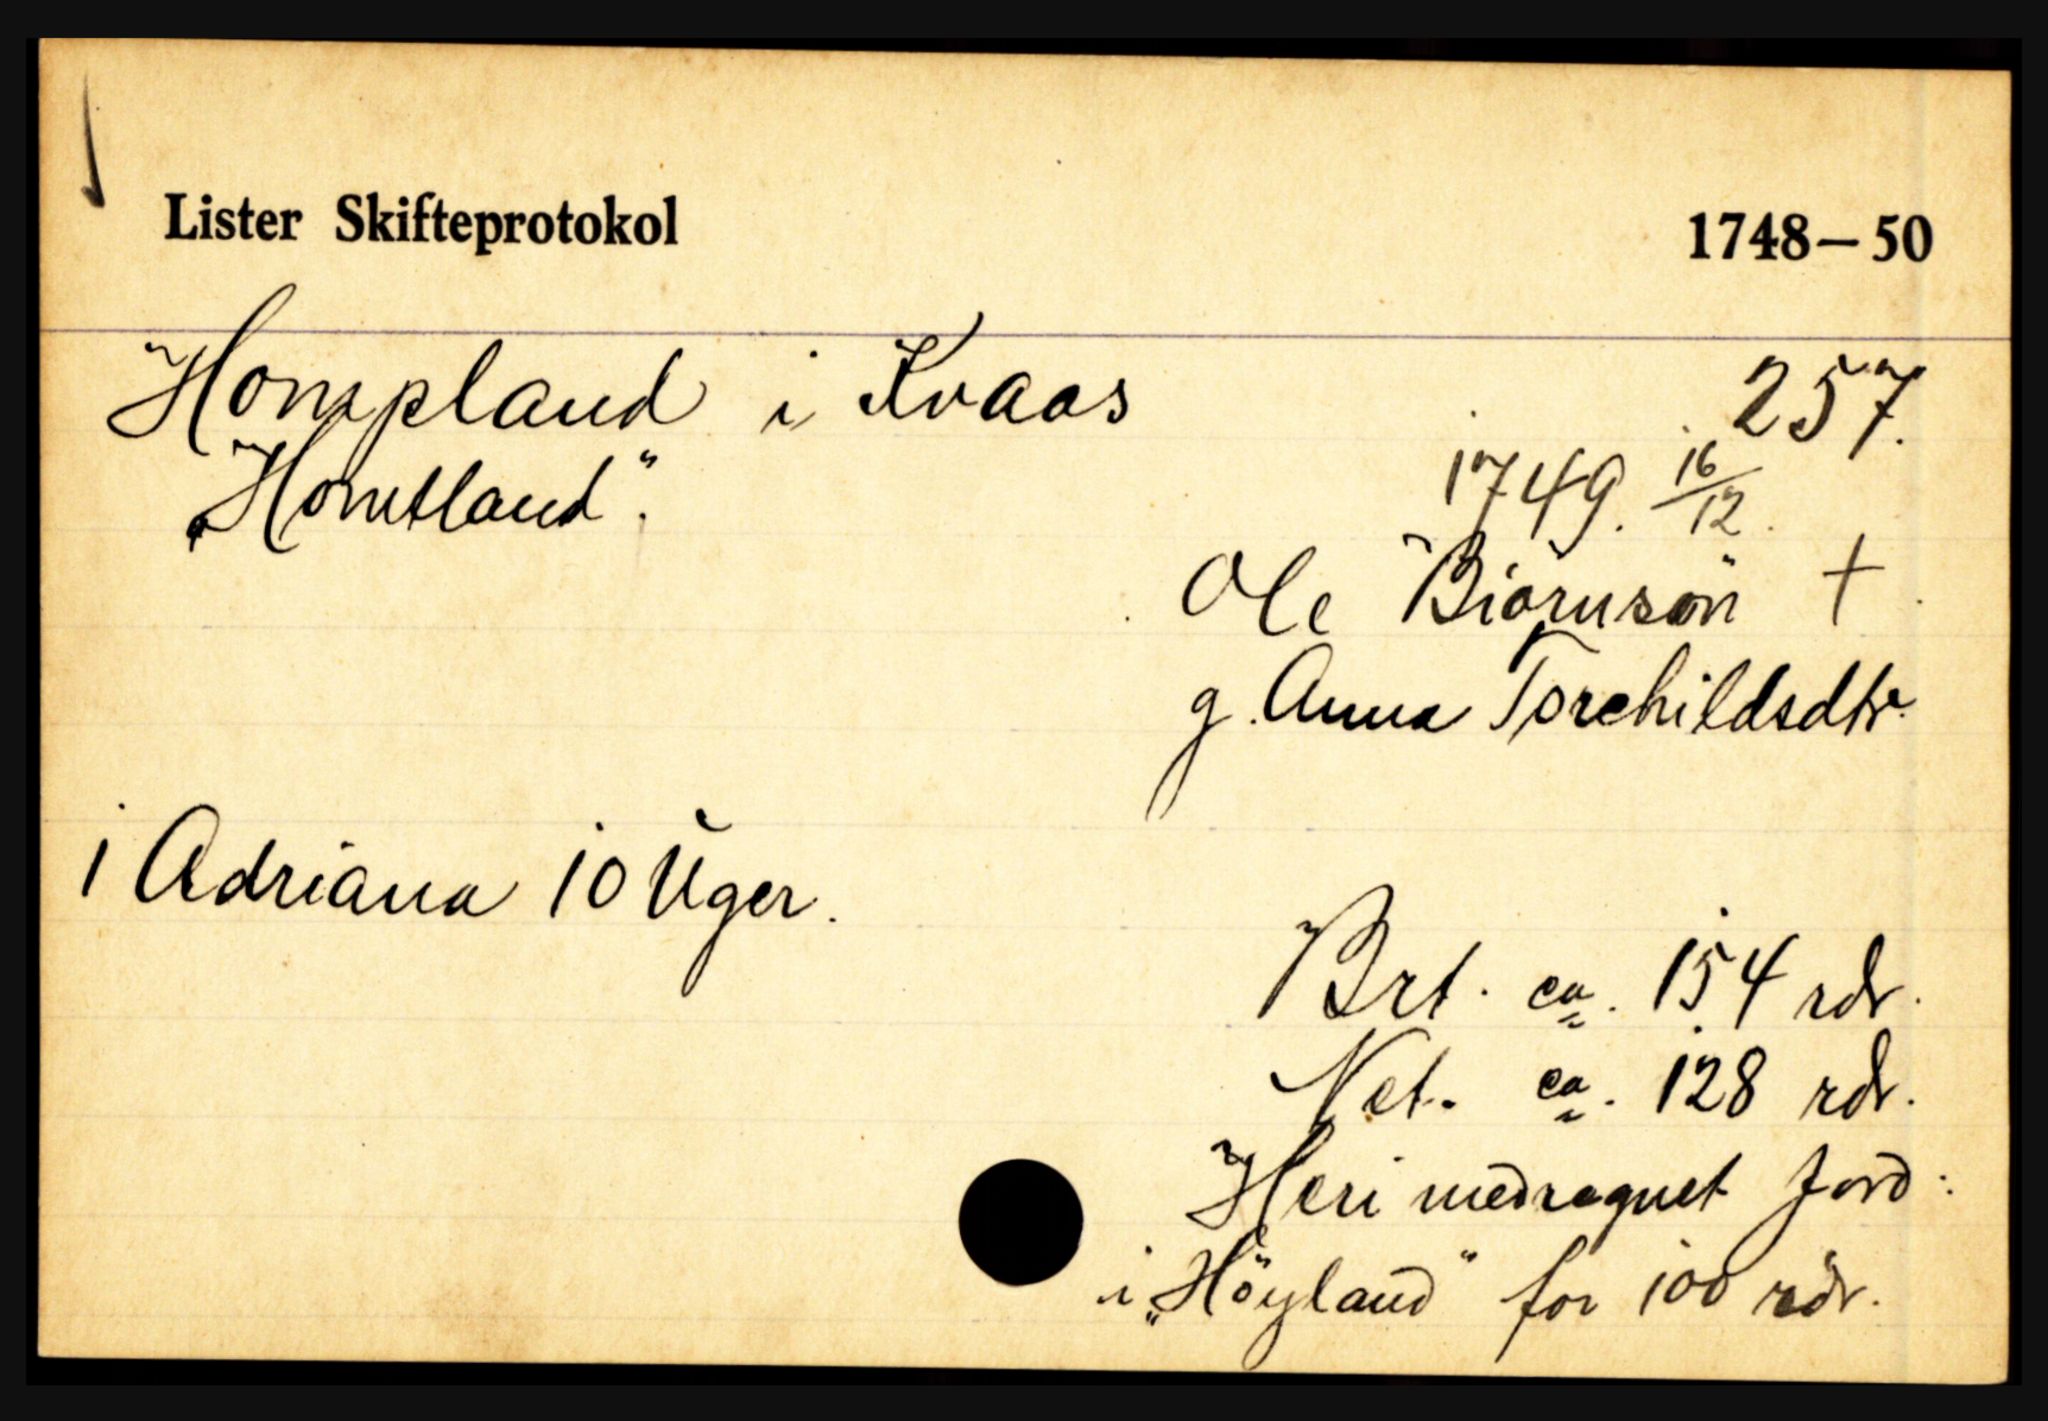 Lister Skifteprotokol 1748—50
Hompland i Kvaas 257.
„Homtland“.
1749. 16/12.
Ole Biörnsön +
g. Anna Torchildsdtr.
1 Adriana 10 Uger.
Brt. ca. 154 rdr.
Net. ca. 128 rdr.
Heri medregnet Jord:
i „Höyland“ for 100 rdr.